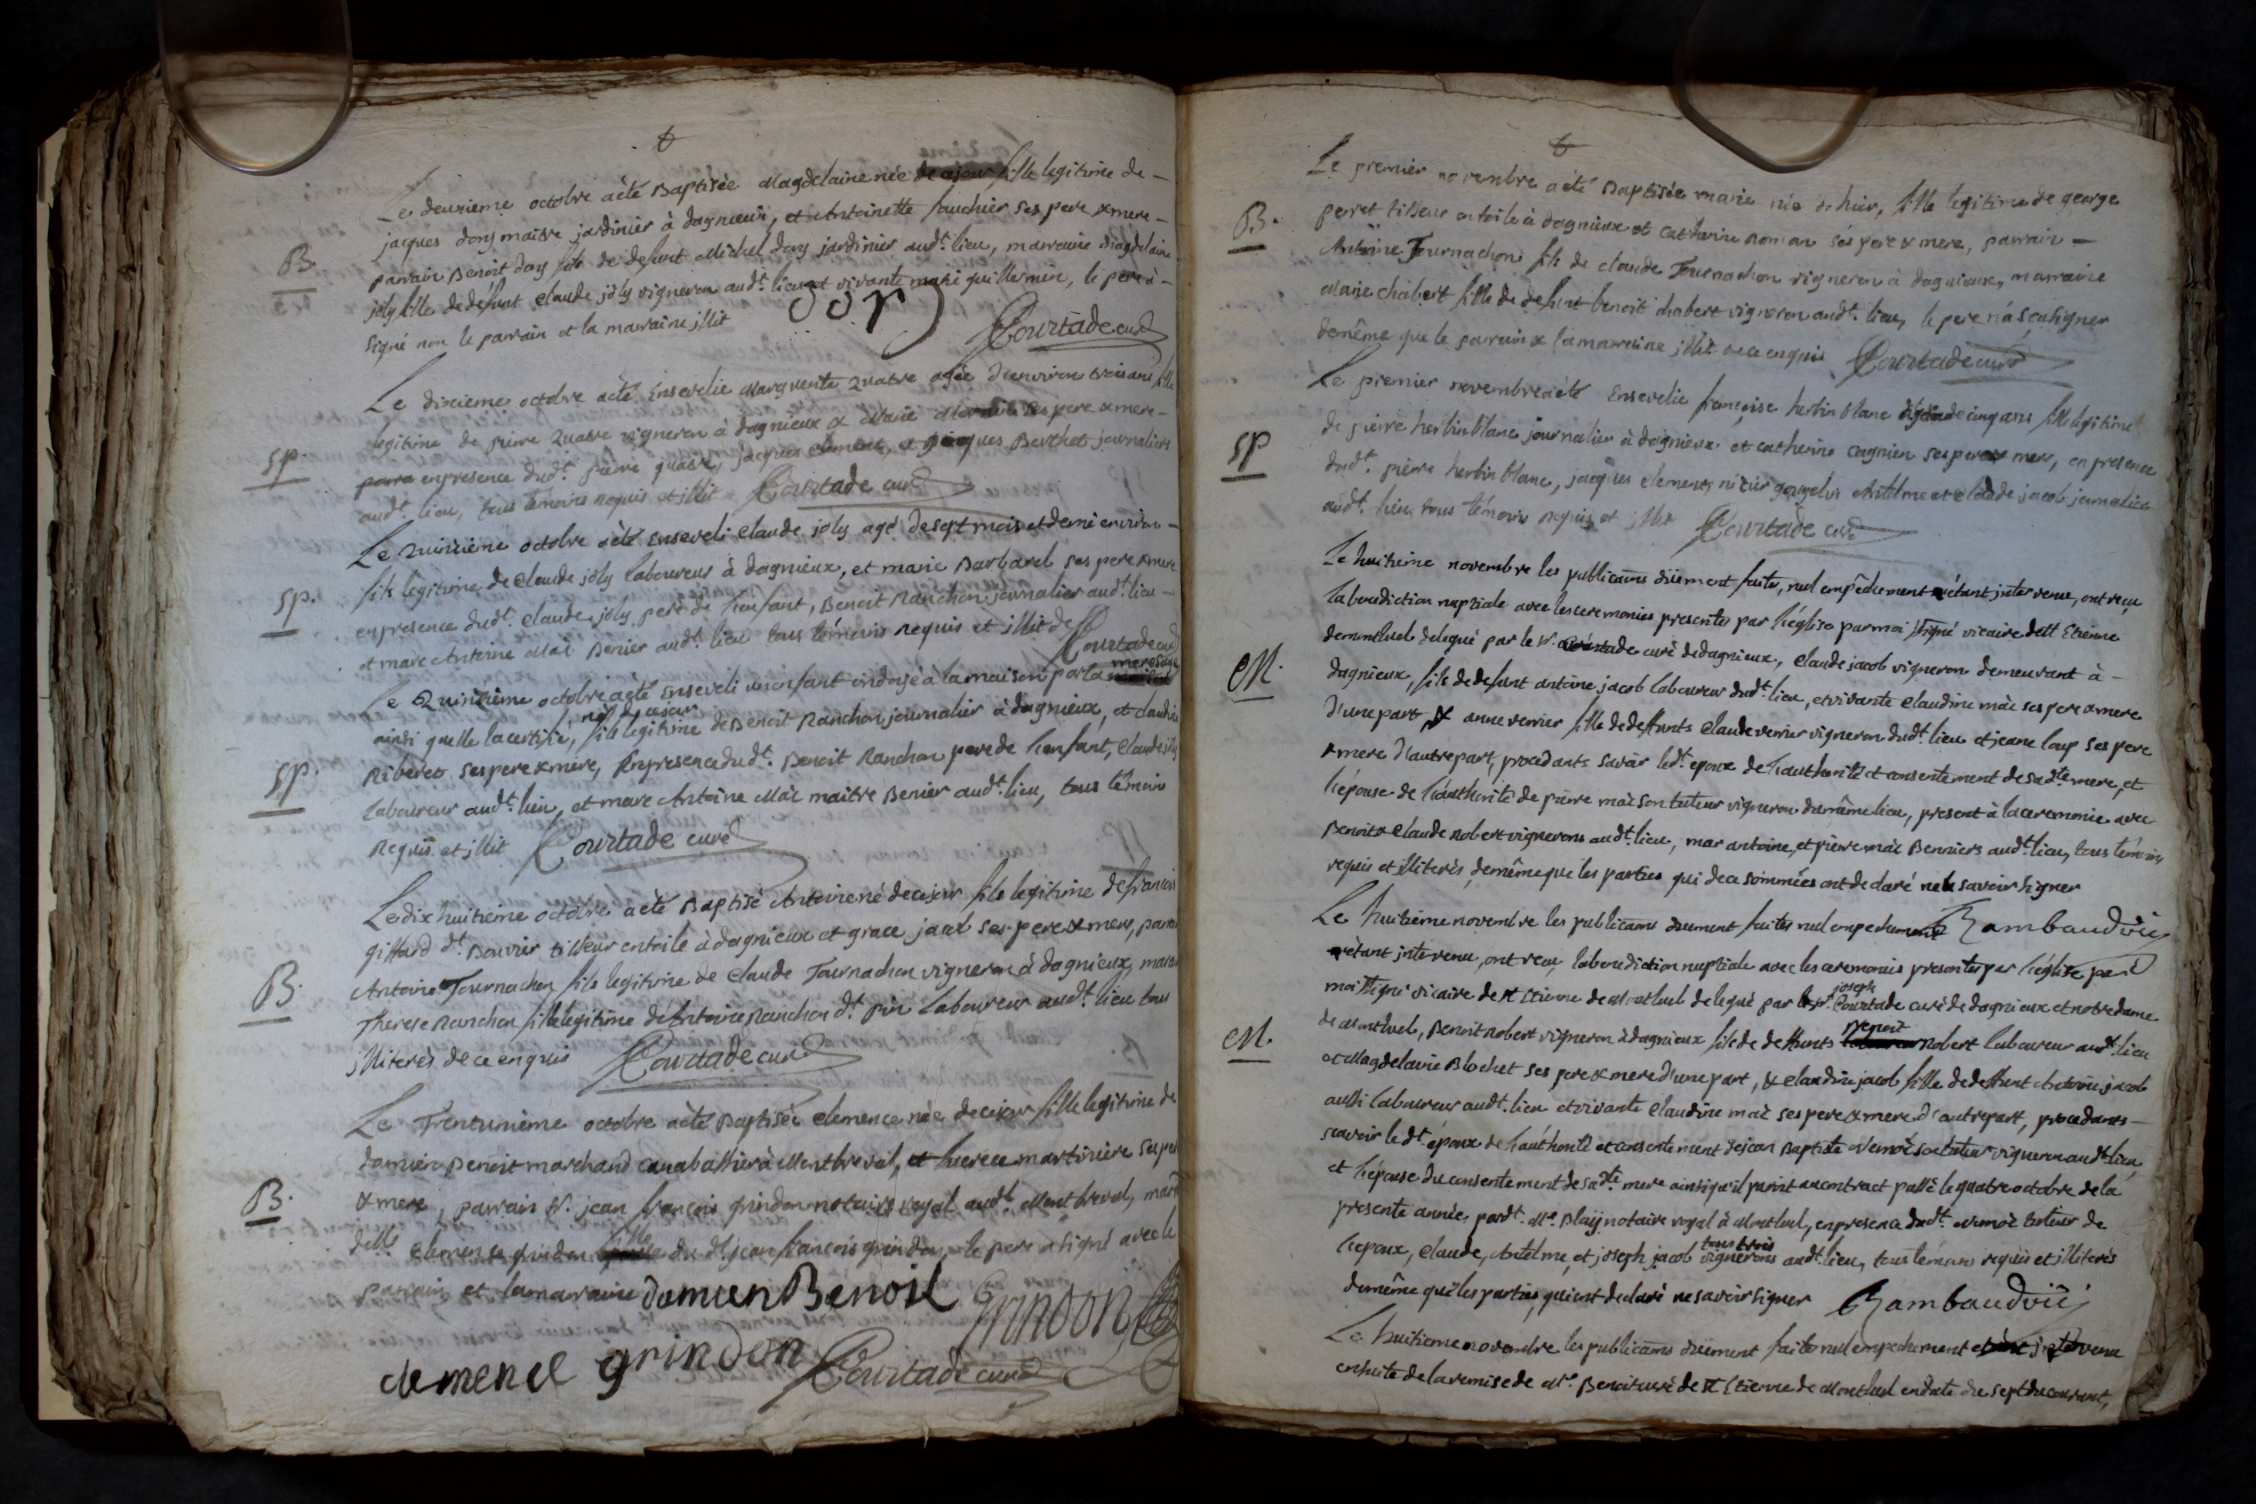 Le deuxieme octobre a été Baptisée Magdelaine née de ce jour fille legitime de
jacques dory maitre jardinier à dagnieux, et Antoinette fauchier ses pere & mere
B.
parrain Benoit dory fils de defunt Michel dory jardinier audt. lieu, marraine Magdelaine
joly fille de defunt Claude joly vigneron audt. lieu et vivante marie guillermin, le pere à
signé non le parrain et la marraine illit
dory
Courtade curé
Le dixieme octobre a été Ensevelie Marguerite Quatre agée d'environ trois ans fille
legitime de pierre Quatre vigneron à dagnieux & Marie ses pere & mere
Sp.
en presence dudt. pierre quatre, jacques clement, et jacques Berthet journaliers
audt. lieu, tous temoins requis et illit Courtade curé
Le Quinzieme octobre a été Enseveli Claude joly agé de sept mois et demi environ
fils legitime de Claude joly laboureur à dagnieux, et marie Barbarel ses pere & mere
Sp.
en presence dudt. Claude joly pere de l'enfant, Benoit Ranchon journalier audt. lieu
et marc Antoine Mai Benier audt. lieu tous témoins requis et illit de
Courtade curé
mere sage
Le Quinzieme octobre a été Enseveli un enfant ondoyé à la maison par la
né du ce jour
ainsi quelle la certifié, fils legitime de Benoit Ranchon journalier à dagnieux, et claudine
Sp.
Riberet ses pere & mere, En presence dudt. Benoit Ranchon pere de l'enfant, Claude joly
laboureur audt. lieu, et marc Antoine Mai maitre Benier audt. lieu, tous témoins
Requis et illit Courtade curé
Le dix huitieme octobre a été Baptisé Antoine né de ce jour fils legitime de francois
giffard dt. Bouvier tisseur en toile à dagnieux et grace jacob ses pere & mere, parrain
B.
Antoine Tournachon fils legitime de Claude Tournachon vigneron à dagnieux, marraine
Therese Ranchon fille legitime de Antoine Ranchon dt. pin laboureur audt. lieu tous
illiterés de ce enquis Courtade curé
Le Trentunième octobre a été Baptisée Clemence née de ce jour fille legitime de
damien Benoit marchand canabassier à Montbreval, et lucrece martiniere ses pere
B.
& mere, parrain Sr. jean françois grindon notaire royal audt. Montbreval, marr
fille
delle Clemense grindon du dt. jean francois grindon, le pere a signé avec le
parrain et la marraine damien Benoit Grindon
clemence grindon Courtade curé
Le premier novembre a été Baptisée marie née de hier, fille legitime de george
B.
perret tisseur en toile à dagnieux et Catherine Roman ses pere & mere, parrain
Antoine Tournachon fils de claude Tournachon vigneron à dagnieux, marraine
Marie chabert fille de defunt benoit chabert vigneron audt. lieu, le pere n'a sçu signer
de même que le parrain & la marraine illit de ce enquis Courtade curé
Le premier novembre a été Ensevelie françoise herbin blanc agée de cinq ans fille legitime
Sp
de pierre herbin blanc journalier à dagnieux et catherine cagnien ses pere & mere, en presence
dudt. pierre herbin blanc, jacques clement Antelme et claude jacob journalier
audt. lieu tous témoins requis et illit Courtade curé
Le huitieme novembre les publicaons düement faites, nul empêchement n'étant intervenu, ont reçu
la benediction nuptiale avec les ceremonies presentes par l'église par moi signé vicaire de St Etienne
de montluel delegué par le Sr. Courtade curé de dagnieux, Claude jacob vigneron demeurant à
M.
dagnieux, fils de defunt antoine jacob laboureur dudt. lieu, et vivante Claudine mai ses pere & mere
d'une part, & anne verrier fille de deffunts Claude verrier vigneron dudt. lieu et jeane loup ses pere
& mere d'autre part, procedants savoir ledt. epoux de l'authorité et consentement de sa dte mere, et
l'épouse de l'authorité de pierre mai son tuteur vigneron du même lieu, present à la ceremonie avec
Benoit & Claude Robert vignerons audt. lieu, mar antoine, et pierre mai Benniers audt. lieu, tous témoins
requis et illiterés, de même que les parties qui de ce sommées ont declaré ne le savoir signer
Rambaud vic
Le huitieme novembre les publicaons düement faites nul empechement
n'étant intervenu, ont reçu la benediction nuptiale avec les ceremonies presentes par l'église par
joseph
moi signé vicaire de St Etienne de Montluel delegué par le Sr. Courtade curé de dagnieux et notre dame
Benoit
M.
de Montluel, Benoit Robert vigneron à dagnieux fils de deffunts Robert laboureur audt. lieu
et Magdelaine Blochet ses pere & mere d'une part, & Claudine jacob fille de deffunt Antoine jacob
aussi laboureur audt. lieu et vivante Claudine mai ses pere & mere d'autre part, procedants
scavoir le dt. époux de l'authorité et consentement de jean Baptiste son tuteur vigneron audt. lieu
et l'épouse du consentement de sa dte mere ainsi qu'il paroit au contract passé le quatre octobre de la
presente année, pardt. Me. Blay notaire royal à Montluel, en presence dudt. tuteur de
tous trois
l'epoux, Claude, Antelme, et joseph jacob vignerons audt. lieu, tous temoins requis et illiterés
de même que les parties, qui ont declaré ne savoir signer Rambaud vic
Le huitieme novembre les publicaons düement faites nul empechement intervenu
ensuite de la remise de Mr. Benoit curé de St Etienne de Montluel en date du sept du courant,